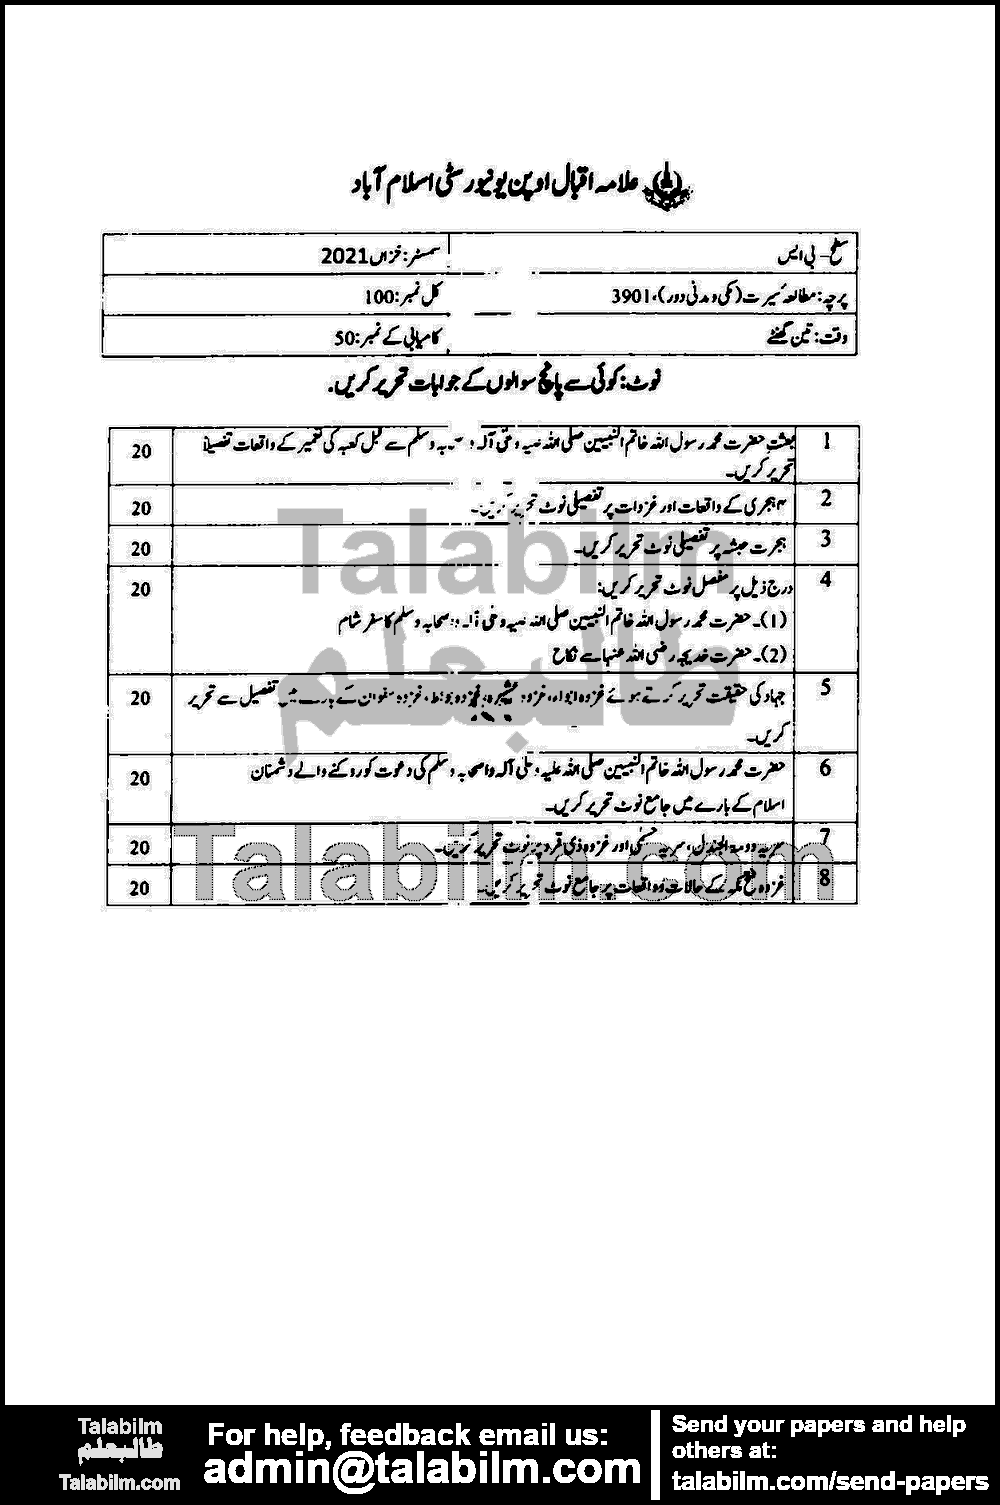 علامہ اقبال اوپن یونیورسٹی اسلام آباد
سطح- بی ایس
سمسٹر: خزاں 2021
پرچہ: مطالعہ سیرت (مکی و مدنی دور)، 3901
کل نمبر: 100
وقت: تین گھنٹے
کامیابی کے نمبر: 50
نوٹ: کوئی سے پانچ سوالوں کے جوابات تحریر کریں۔
1 بعثتِ حضرت محمد رسول اللہ خاتم النبیین صلی اللہ علیہ وعلی آلہ و وسلم سے قبل کعبہ کی تعمیر کے واقعات تفصیلاً 20
تحریر کریں۔
2 ۴ ہجری کے واقعات اور غزوات پر تفصیلی نوٹ تحریر کریں۔ 20
3 ہجرت حبشہ پر تفصیلی نوٹ تحریر کریں۔ 20
4 درج ذیل پر مفصل نوٹ تحریر کریں: 20
(1)۔ حضرت محمد رسول اللہ خاتم النبیین صلی اللہ علیہ وعلی آلہ واصحابہ وسلم کا سفر شام
(2)۔ حضرت خدیجہ رضی اللہ عنہا سے نکاح
5 جہاد کی حقیقت تحریر کرتے ہوئے غزوہ ابواء، غزوہ عشیرہ، غزوہ بواط، غزوہ سفوان کے بارے میں تفصیل سے تحریر 20
کریں۔
6 حضرت محمد رسول اللہ خاتم النبیین صلی اللہ علیہ وعلی آلہ واصحابہ وسلم کی دعوت کو روکنے والے دشمنان 20
اسلام کے بارے میں جامع نوٹ تحریر کریں۔
7 سریہ دومۃ الجندل، سریہ حسمٰی اور غزوہ ذی قرد پر نوٹ تحریر کریں۔ 20
8 غزوہ فتح مکہ کے حالات وواقعات پر جامع نوٹ تحریر کریں۔ 20
Talabilm
طالبعلم
Talabilm.com
Talabilm
طالبعلم
Talabilm.com
For help, feedback email us:
admin@talabilm.com
Send your papers and help
others at:
talabilm.com/send-papers